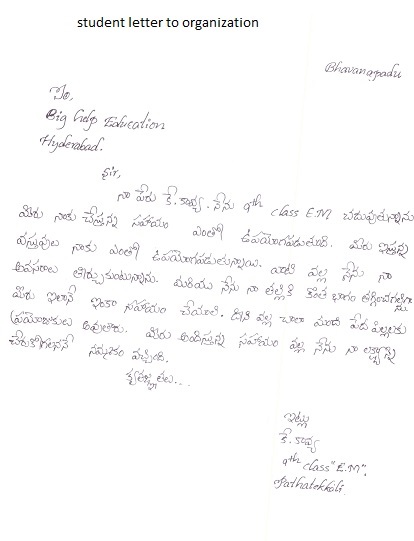 student letter to organization
Bhavanapadu
To,
Big help Education
Hyderabad.
Sir,
నా పేరు కే. కావ్య. నేను 9th class E.M చదువుతున్నాను
మీరు నాకు చేస్తున్న సహాయం ఎంతో ఉపయోగపడుతుంది. మీరు ఇస్తున్న
వస్తువులు నాకు ఎంతో ఉపయోగపడుతున్నాయి. వాటి వల్ల నేను నా
అవసరాలు తీర్చుకుంటున్నాను. మరియు నేను నా తల్లికి కొంత భారం తగ్గించగల్గాను
మీరు ఇలానే ఇంకా సహాయం చేయాలి. దీని వల్ల చాలా మంది పేద పిల్లలకు
ప్రయోజకులు అవుతారు. మీరు అందిస్తున్న సహాయం వల్ల నేను నా లక్ష్యాన్ని
చేరుకోగలననే నమ్మకం వచ్చింది.
కృతజ్ఞతలు...
ఇట్లు
కే. కావ్య
9th class "E.M".
Pathatekkali.